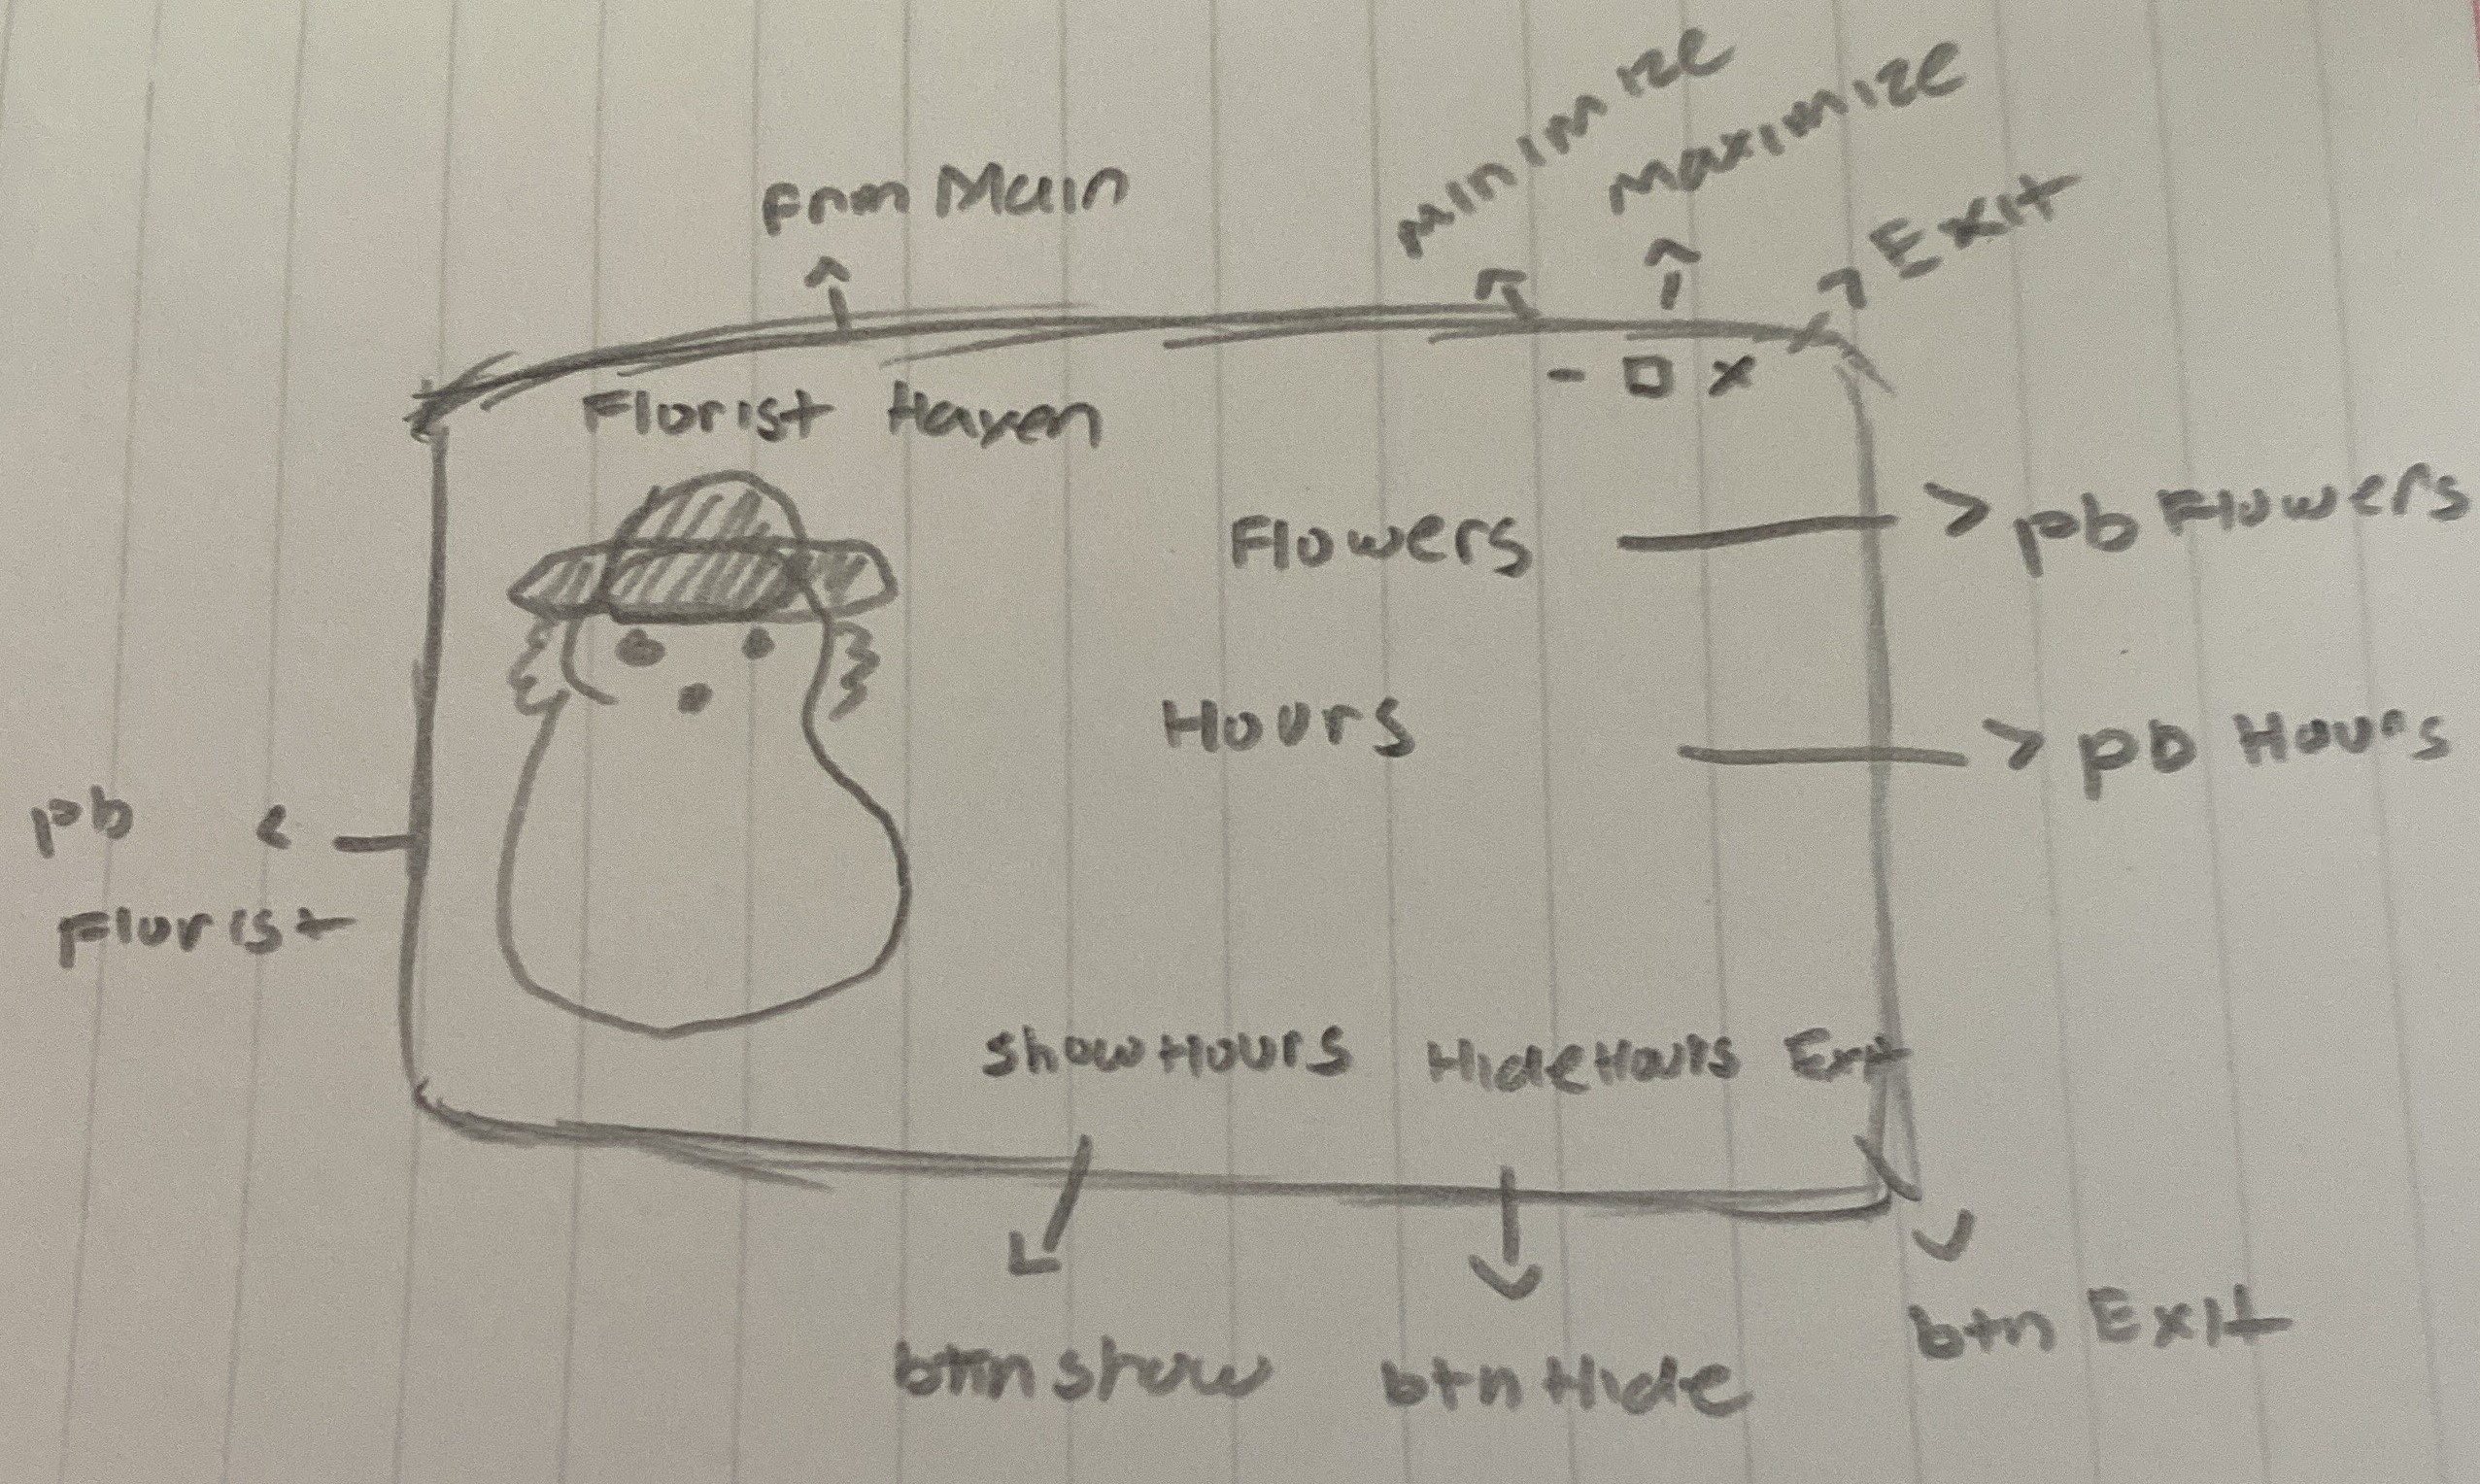 minimize
maximize
Exit
Frm Main
- □ x
Florist Haven
Flowers
pb Flowers
Hours
pb Hours
pb
Florist
Show Hours Hide Hours Exit
btn Show
btn Hide
btn Exit